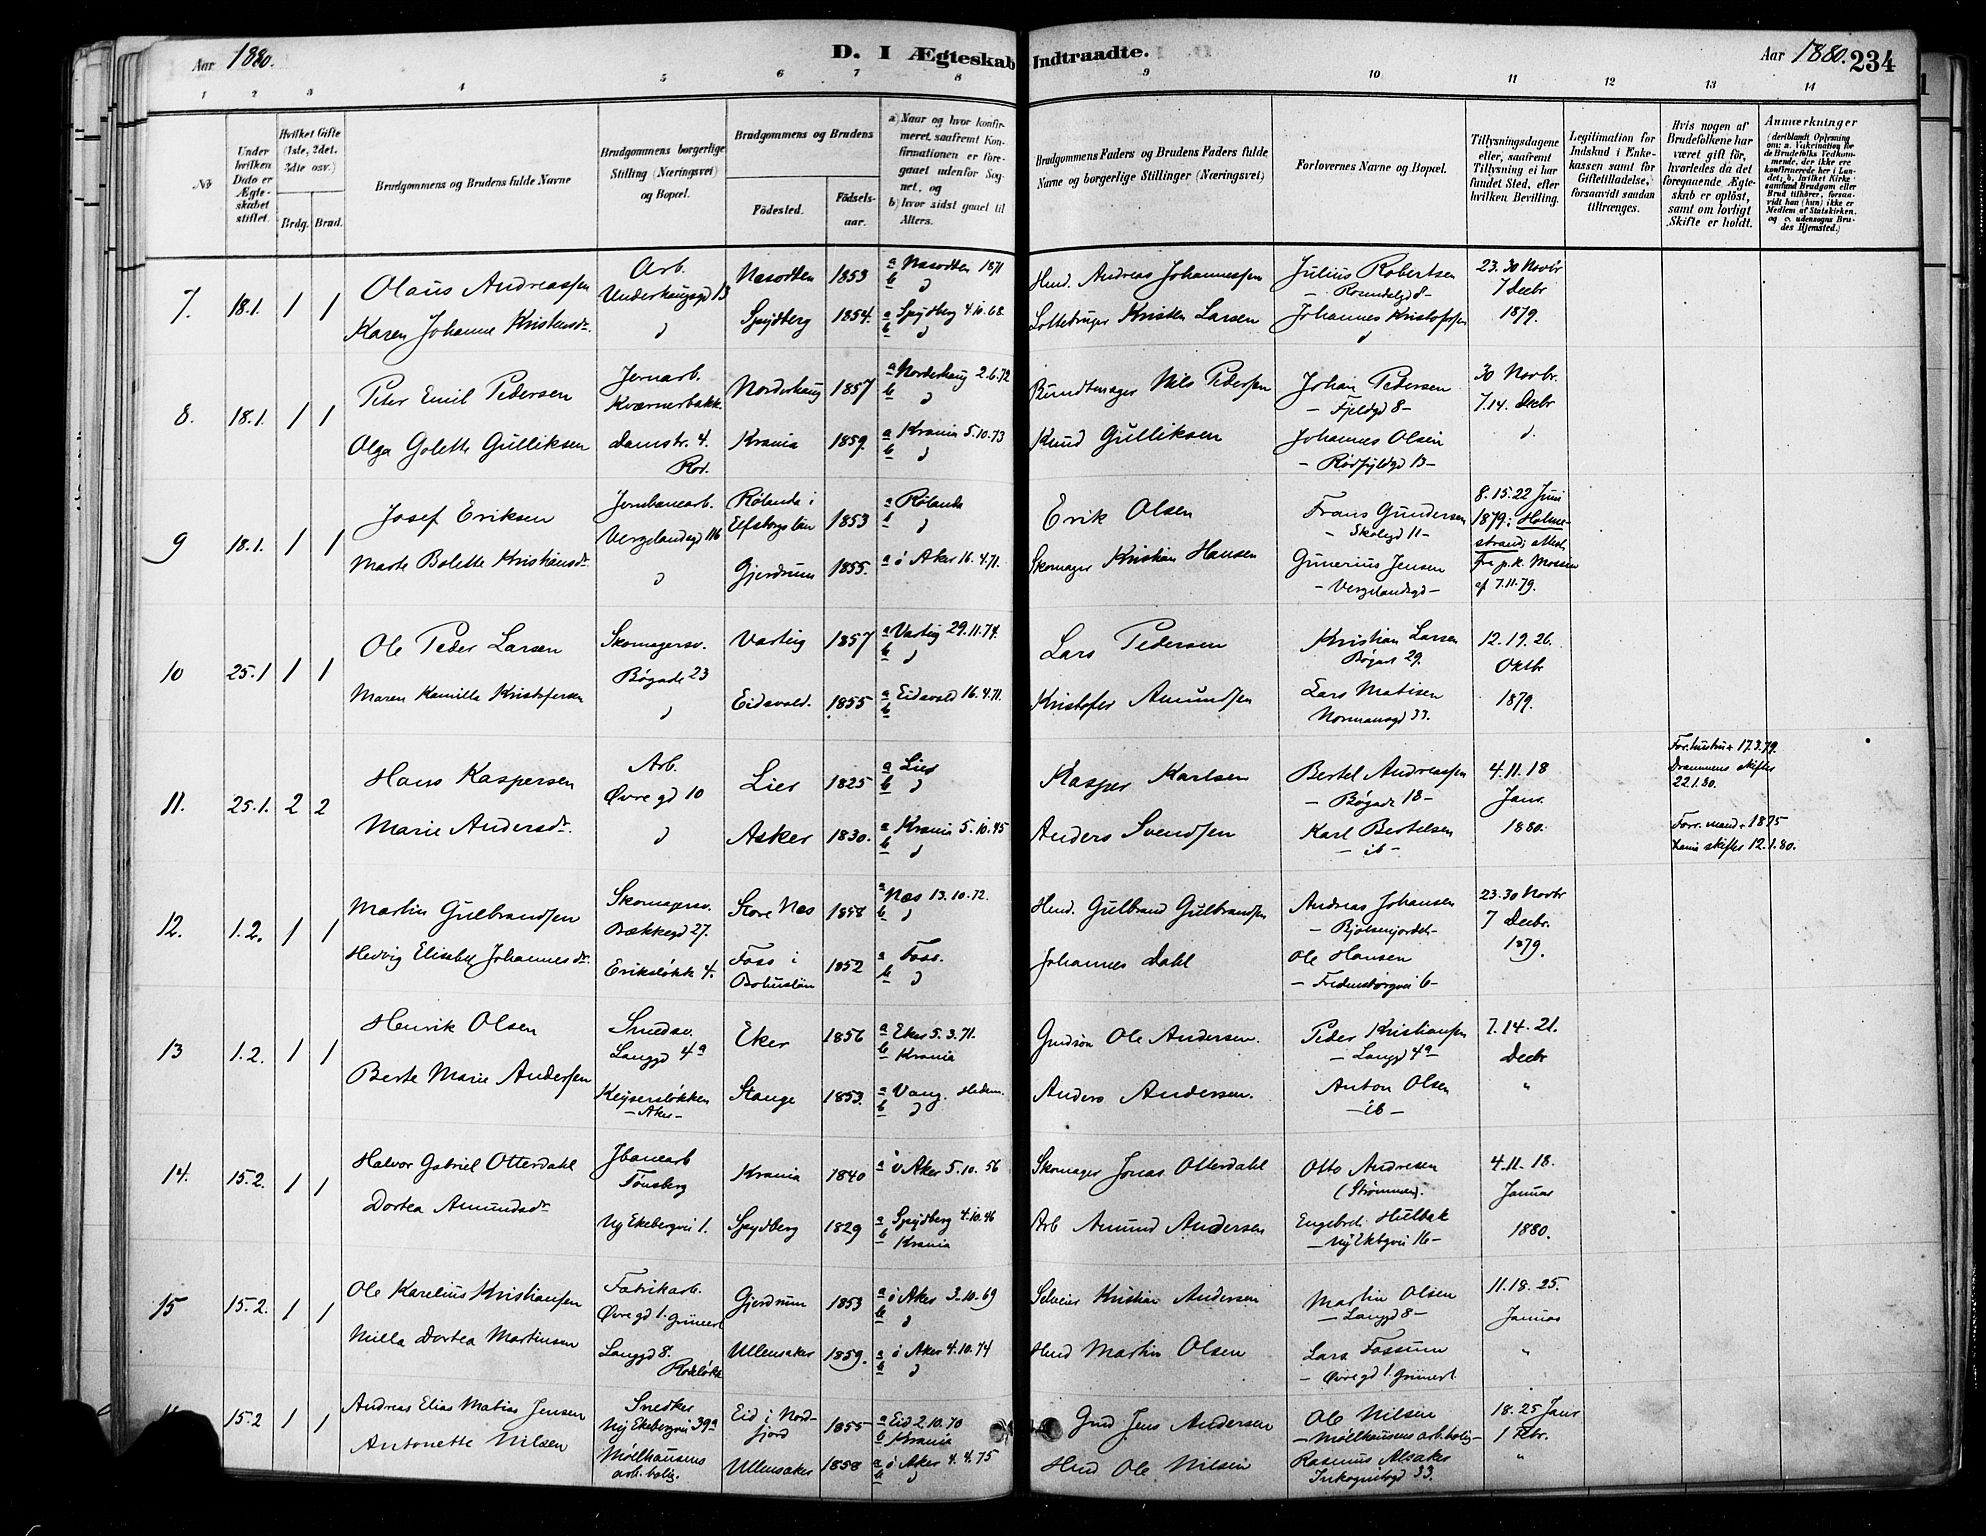 Aar 1880.
D. I Ægteskab Indtraadte.
Aar 1880. 234
1 2 3 4 5 6 7 8 9 10 11 12 13 14
No
Under hvilken Dato er Ægteskabet stiftet.
Hvilket Gifte (1ste, 2det, 3die osv.)
Brdg. Brud.
Brudgommens og Brudens fulde Navne
Brudgommens borgerlige Stilling (Næringsvei) og Bopæl.
Brudgommens og Brudens
Fødested.
Fødselsaar.
a) Naar og hvor konfirmeret, saafremt Konfirmationen er foregaaet udenfor Sognet, og
b) hvor sidst gaaet til Alters.
Brudgommens Faders og Brudens Faders fulde Navne og borgerlige Stillinger (Næringsvei)
Forlovernes Navne og Bopæl.
Tillysningsdagene eller, saafremt Tillysning ei har fundet Sted, efter hvilken Bevilling.
Legitimation for Indskud i Enkekassen samt for Giftetilladelse, forsaavidt saadan tiltrænges.
Hvis nogen af Brudefolkene har været gift før, hvorledes da det foregaaende Ægteskab er opløst, samt om lovligt Skifte er holdt.
Anmærkninger
(deriblandt Oplysning om: a. Vakcination for de Brudefolks Vedkommende, der ikke ere konfirmerede her i Landet; b. hvilket Kirkesamfund Brudgom eller Brud tilhører, forsaavidt han (hun) ikke er Medlem af Statskirken, og c. udensogns Brudes Hjemsted.)
7. 18.1. 1 1
Olaus Andreassen Arb. Underhaugsgd 13 Nasodten 1853 a Nasodten 1871 b d
Hmd. Andreas Johannessen Julius Robertsen – Rosendalgd 8 – 23. 30 Novbr 7 Decbr
Karen Johanne Kristensdr. d Spydberg 1854. a Spydberg 4.10.68. b d
Lottebruger Kristen Larsen Johannes Kristofersen d 1879.
8. 18.1. 1 1
Peter Emil Pedersen Jernarb. Kværnerbakk. Norderhaug 1857 a Norderhaug 2.6.72 b d
Bundtmager Nils Pedersen Johan Pedersen – Fjeldgd 8 – 30 Novbr. 7.14. Decbr
Olga Golette Gulliksen damstr. 4. Krania 1859. a Krania 5.10.73 b d
Knud Gulliksen Johannes Olsen – Rødfyldgd 13 – d.
9 18.1. 1 1
Josef Eriksen Jernbanearb. Vergelandsgd 116 Rølanda i Elfsborgs län 1853 a Rølanda d
Erik Olsen Frans Gundersen – Skolegd 11 – 8. 15. 22 Juni 1879 i Holmestrand; attest
Marte Bolette Kristiansdr. d Gjerdrum 1855. a ø Aker 16.4.71.
Skomager Kristian Hansen Gunerius Jensen – Vergelandsgd – fra p.k. Mossin af 7.11.79.
10 25.1 1 1
Ole Peder Larsen Skomagersv. Bøgade 23 Varteig 1857 a Varteig 29.11.74. b d
Lars Pedersen Kristian Larsen Bøgade 29. 12. 19. 26. Oktbr
Maren Kamilla Kristofersen d Eidsvold. 1855 a Eidsvold 16.4.71. b
Kristofer Amundsen Lars Matisen Normansgd 33. 1879.
11. 25.1. 2 2
Hans Kaspersen Arb. Øvre gd 10 Lier 1825 a Lier b d
Kasper Karlsen Bertel Andreassen – Bøgade 18 – 4. 11. 18 Janr. For. hustru + 17.3.79. Drammens skifter. 22.1.80.
Marie Andersdr. d Asker 1830. a Krania 5.10.45 b d
Anders Svendsen Karl Bertelsen – ib – 1880. Forr. mand + 1875 Krania skifter 12.1.80.
12. 1.2. 1 1
Martin Gulbrandsen Skomagersv. Bækkegd 27. Store Næs 1858 a Næs 13.10.72. b d
Hmd. Gulbrand Gulbrandsen Andreas Johansen – Bjølsenjordet – 23. 30 Novbr 7 Decbr.
Hedvig Elisabet Johannesdr. Eriksløkk 4. Foss i Bohuslän 1852 a Foss. b d
Johannes Dahl Ole Hansen – Fredensborgvei 6 – 1879.
13 1.2. 1 1
Henrik Olsen Smedsv. Langgd 4a Eker 1856 a Eker 5.3.71. b Krania
Ole Andersen. Peder Kristiansen – Langgd 4a – 7. 14. 21. Decbr
Berte Marie Andersen Keysersløkken – Aker – Stange 1853. a Vang. Hedem. b d
Anders Andersen. Anton Olsen – ib – "
14. 15.2. 1 1
Halvor Gabriel Otterdahl Jbanearb Tønsberg Krania 1840 a v Aker 5.10.56
Skomager Jonas Otterdahl Otto Andresen (Strømmen). 4. 11. 18. Januar
Dortea Amundsdr Ny Ekebergvei 1. Spydberg 1829 a Spydberg 4.10.46 b Krania
Arb Amund Andersen Engebret Hulbak – Ny Ekbgvei 16 – 1880.
15 15.2. 1 1
Ole Karelius Kristiansen Fabrikarb. Øvre gd 1. Grünerl Gjerdrum 1853 a ø Aker 3.10.69 b d
Selveier Kristian Andersen Martin Olsen – Langgd 8 – 11. 18. 25. Januar
Milla Dortea Martinsen Langgd 8. Rodeløkk Ullensaker 1859. a ø Aker 4.10.74 b d
Hmd Martin Olsen Lars Fossum – Øvre gd 1. Grünerl "
15.2 1 1
Andreas Elias Matias Jensen Snedker Ny Ekebergvei 39a Eid i Nordfjord 1855 a Eid 2.10.70 b Krania
Gmd Jens Andersen Ole Nilsen – Møllhausens arb.bolig – 18. 25 Janr 1 Febr.
Antonette Nilsen Møllhausens arb. bolig. Ullensaker 1858 a ø Aker 4.4.75 b d
Hmd Ole Nilsen Rasmus Alsaker Inkognitogd 33. "